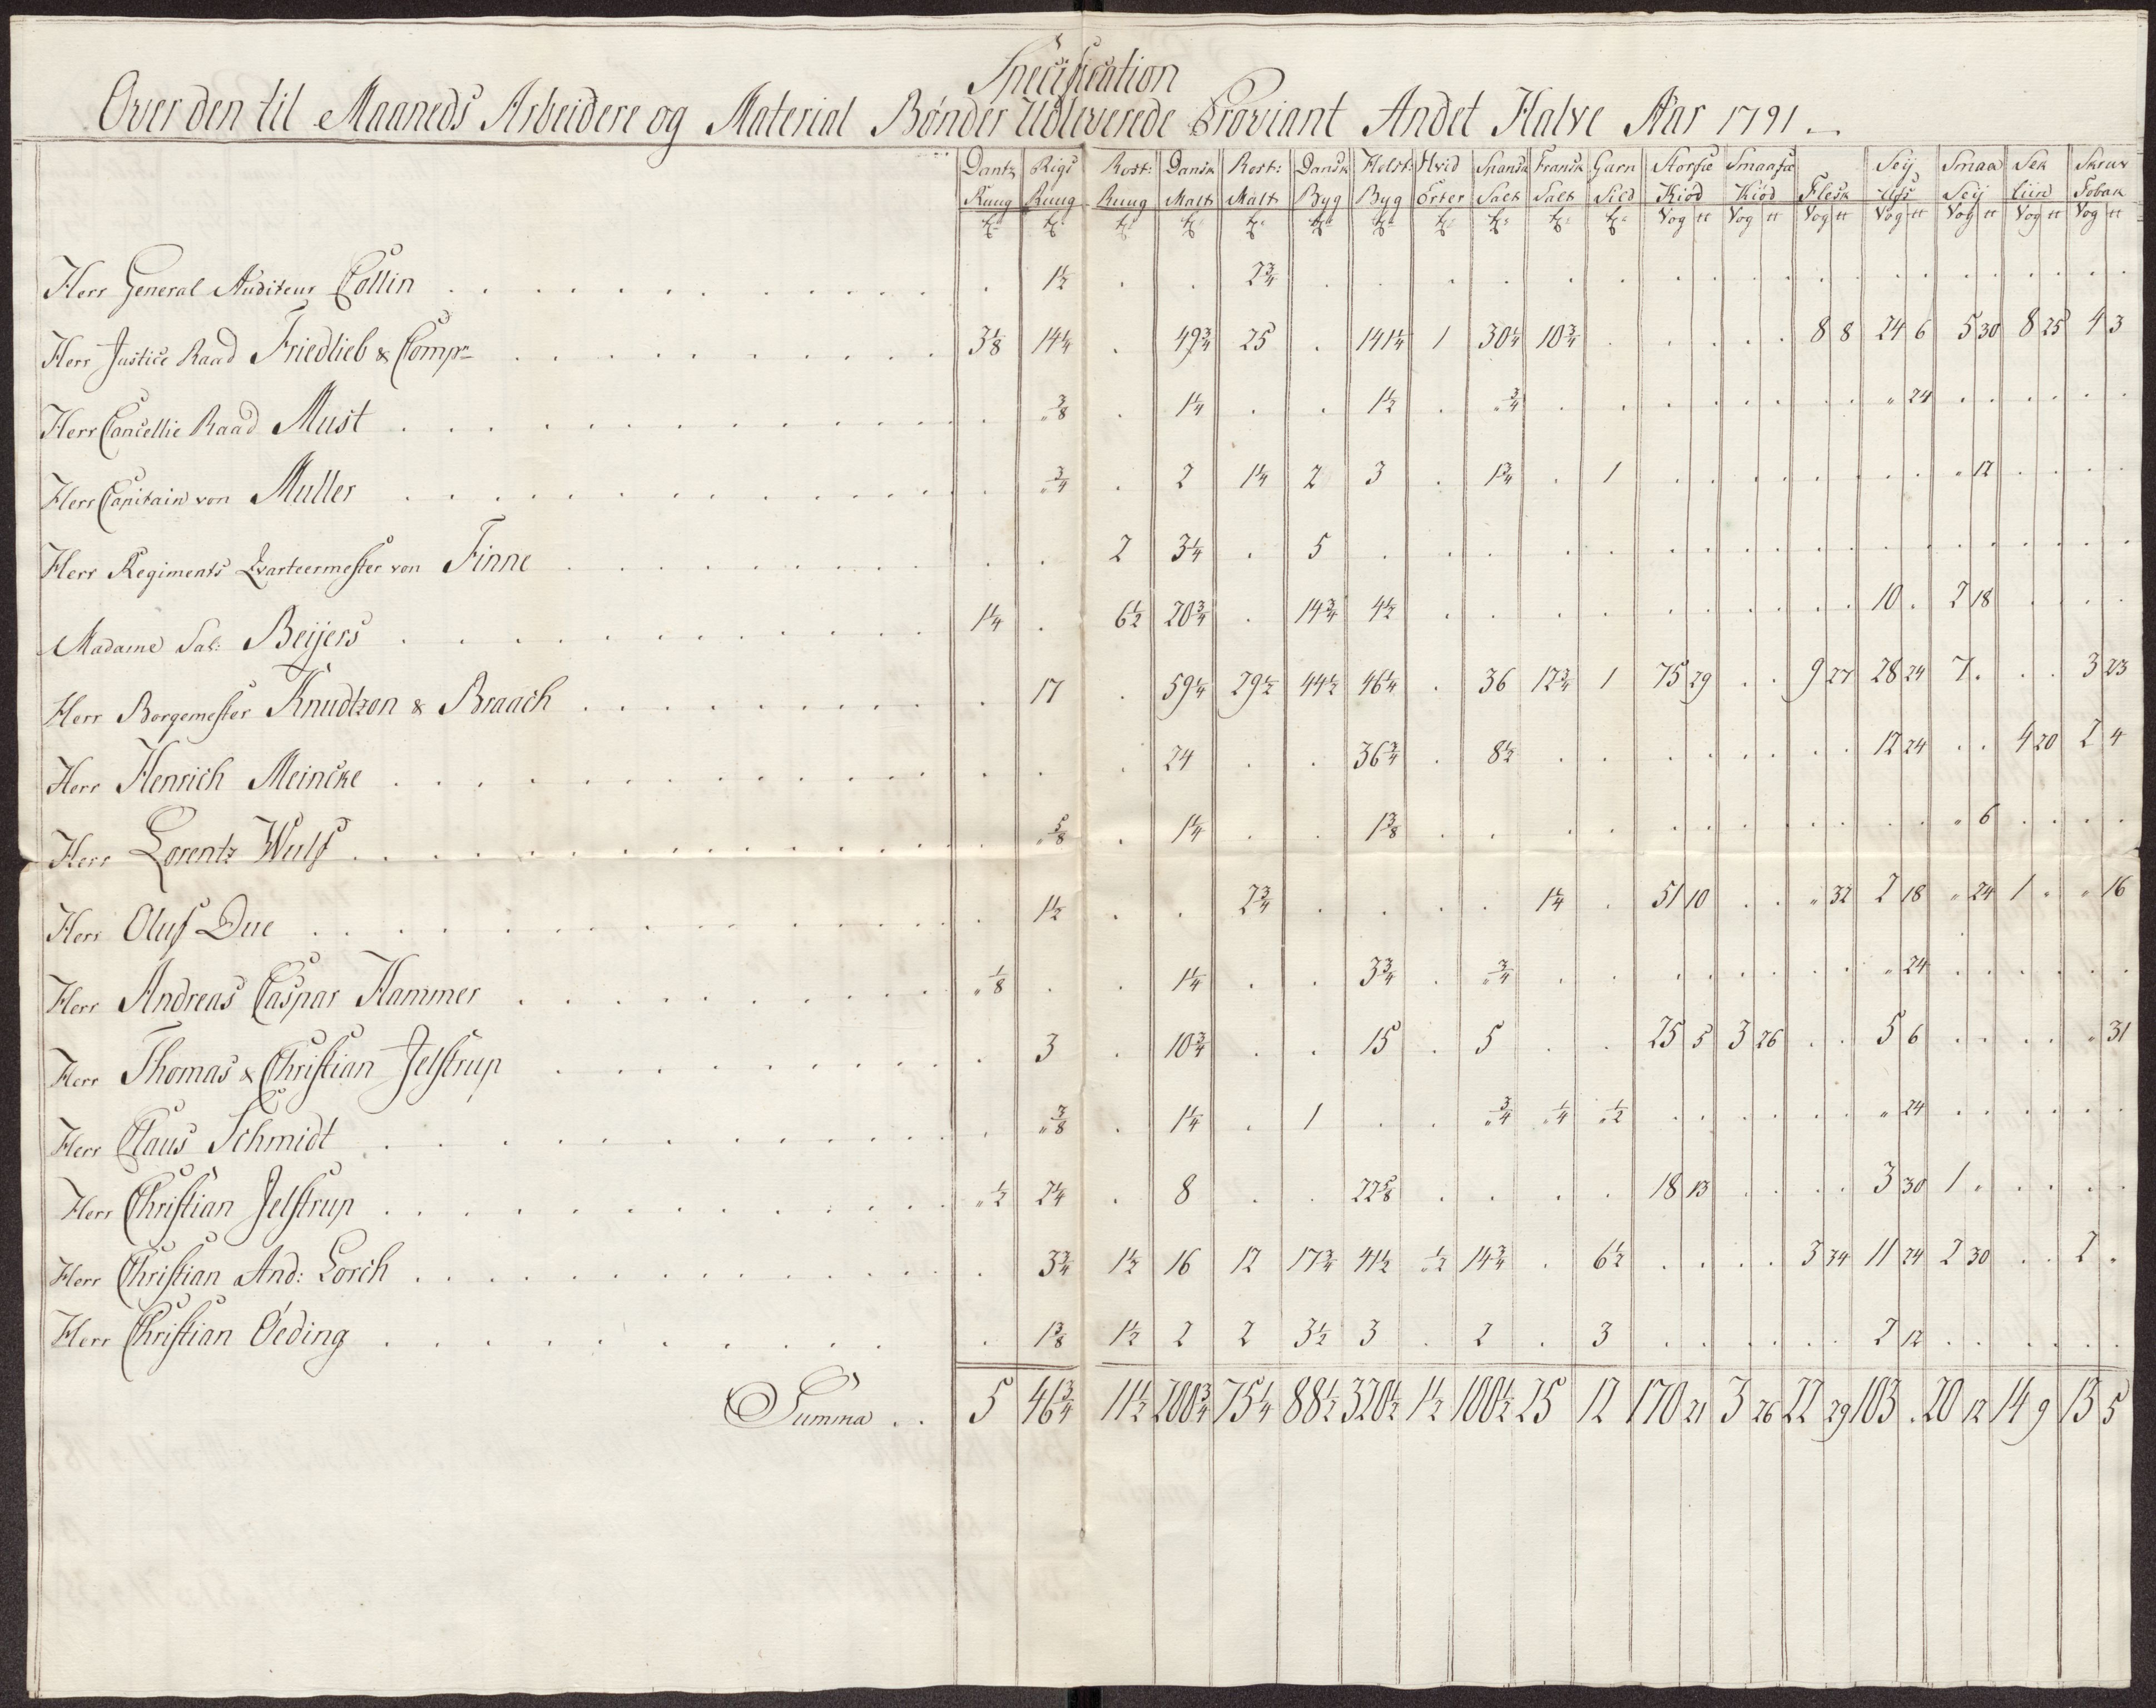 Specification
Over den til Maaneds Arbeidere og Material Bönder Udleverede Proviant Andet Halve Aar 1791.
Dantz Rigs Rost: Dansk Rost: Dansk Holst: Hvid Spansk Fransk Garn Storfæ Smaafæ Seij Smaa Sek Skruv
Ruug Ruug Ruug Malt Malt Byg Byg Erter Salt Salt Sild Kiöd Kiöd Flesk Ufs Seij Liin Tobak
Vog ℔ Vog ℔ Vog ℔ Vog ℔ Vog ℔ Vog ℔ Vog ℔
Herr General Auditeur Collin . 1½ . . 2¾
Herr Justice Raad Friedlieb & Comp: 3⅛ 14¼ . 49¾ 25 . 141¼ 1 30¼ 10¾ . . . . . 8 8 24 6 5 30 8 25 4 3
Herr Cancellie Raad Must . " ⅜ . 1¼ . . 1½ . " ¾ . . . . . . . . " 24
Herr Capitain von Muller . " ¾ . 2 1¼ 2 3 . 1¾ . 1 . . . . . . . . " 12
Herr Regiments Qvarteermester von Finne . . 2 3¼ . 5
Madame Sal: Beijers 1¼ . 6½ 20¾ . 14¾ 4½ . . . . . . . . . . 10 . 2 18
Herr Borgemester Knudtzon & Braach . 17 . 59¼ 29½ 44½ 46¼ . 36 12¾ 1 75 29 . . 9 27 28 24 7 . . . 3 23
Herr Henrich Meincke . . . 24 . . 36¾ . 8½ . . . . . . . . 12 24 . . 4 20 2 4
Herr Lorentz Wulf . " ⅝ . 1¼ . . 1⅜ . . . . . . . . . . . . " 6
Herr Oluf Due . 1½ . . 2¾ . . . . 1¼ . 51 10 . . " 32 2 18 " 24 1 " " 16
Herr Andreas Caspar Hammer " ⅛ . . 1¼ . . 3¾ . " ¾ . . . . . . . . " 24
Herr Thomas & Christian Jelstrup . 3 . 10¾ . . 15 . 5 . . 25 5 3 26 . . 5 6 . . . . " 31
Herr Claus Schmidt . " ⅞ . 1¼ . 1 . . " ¾ " ¼ " ½ . . . . . . " 24
Herr Christian Jelstrup " ½ 2¼ . 8 . . 22⅝ . . . . 18 13 . . . . 3 30 1 .
Herr Christian And: Lorch . 3¾ 1½ 16 12 17¾ 41½ " ½ 14¾ . 6½ . . . . 3 34 11 24 2 30 . . 2 .
Herr Christian Öeding . 1⅜ 1½ 2 2 3½ 3 . 2 . 3 . . . . . . 2 12
Summa . . 5 46¾ 11½ 200¾ 75¼ 88½ 320½ 1½ 100½ 25 12 170 21 3 26 22 29 103 . 20 12 14 9 13 5